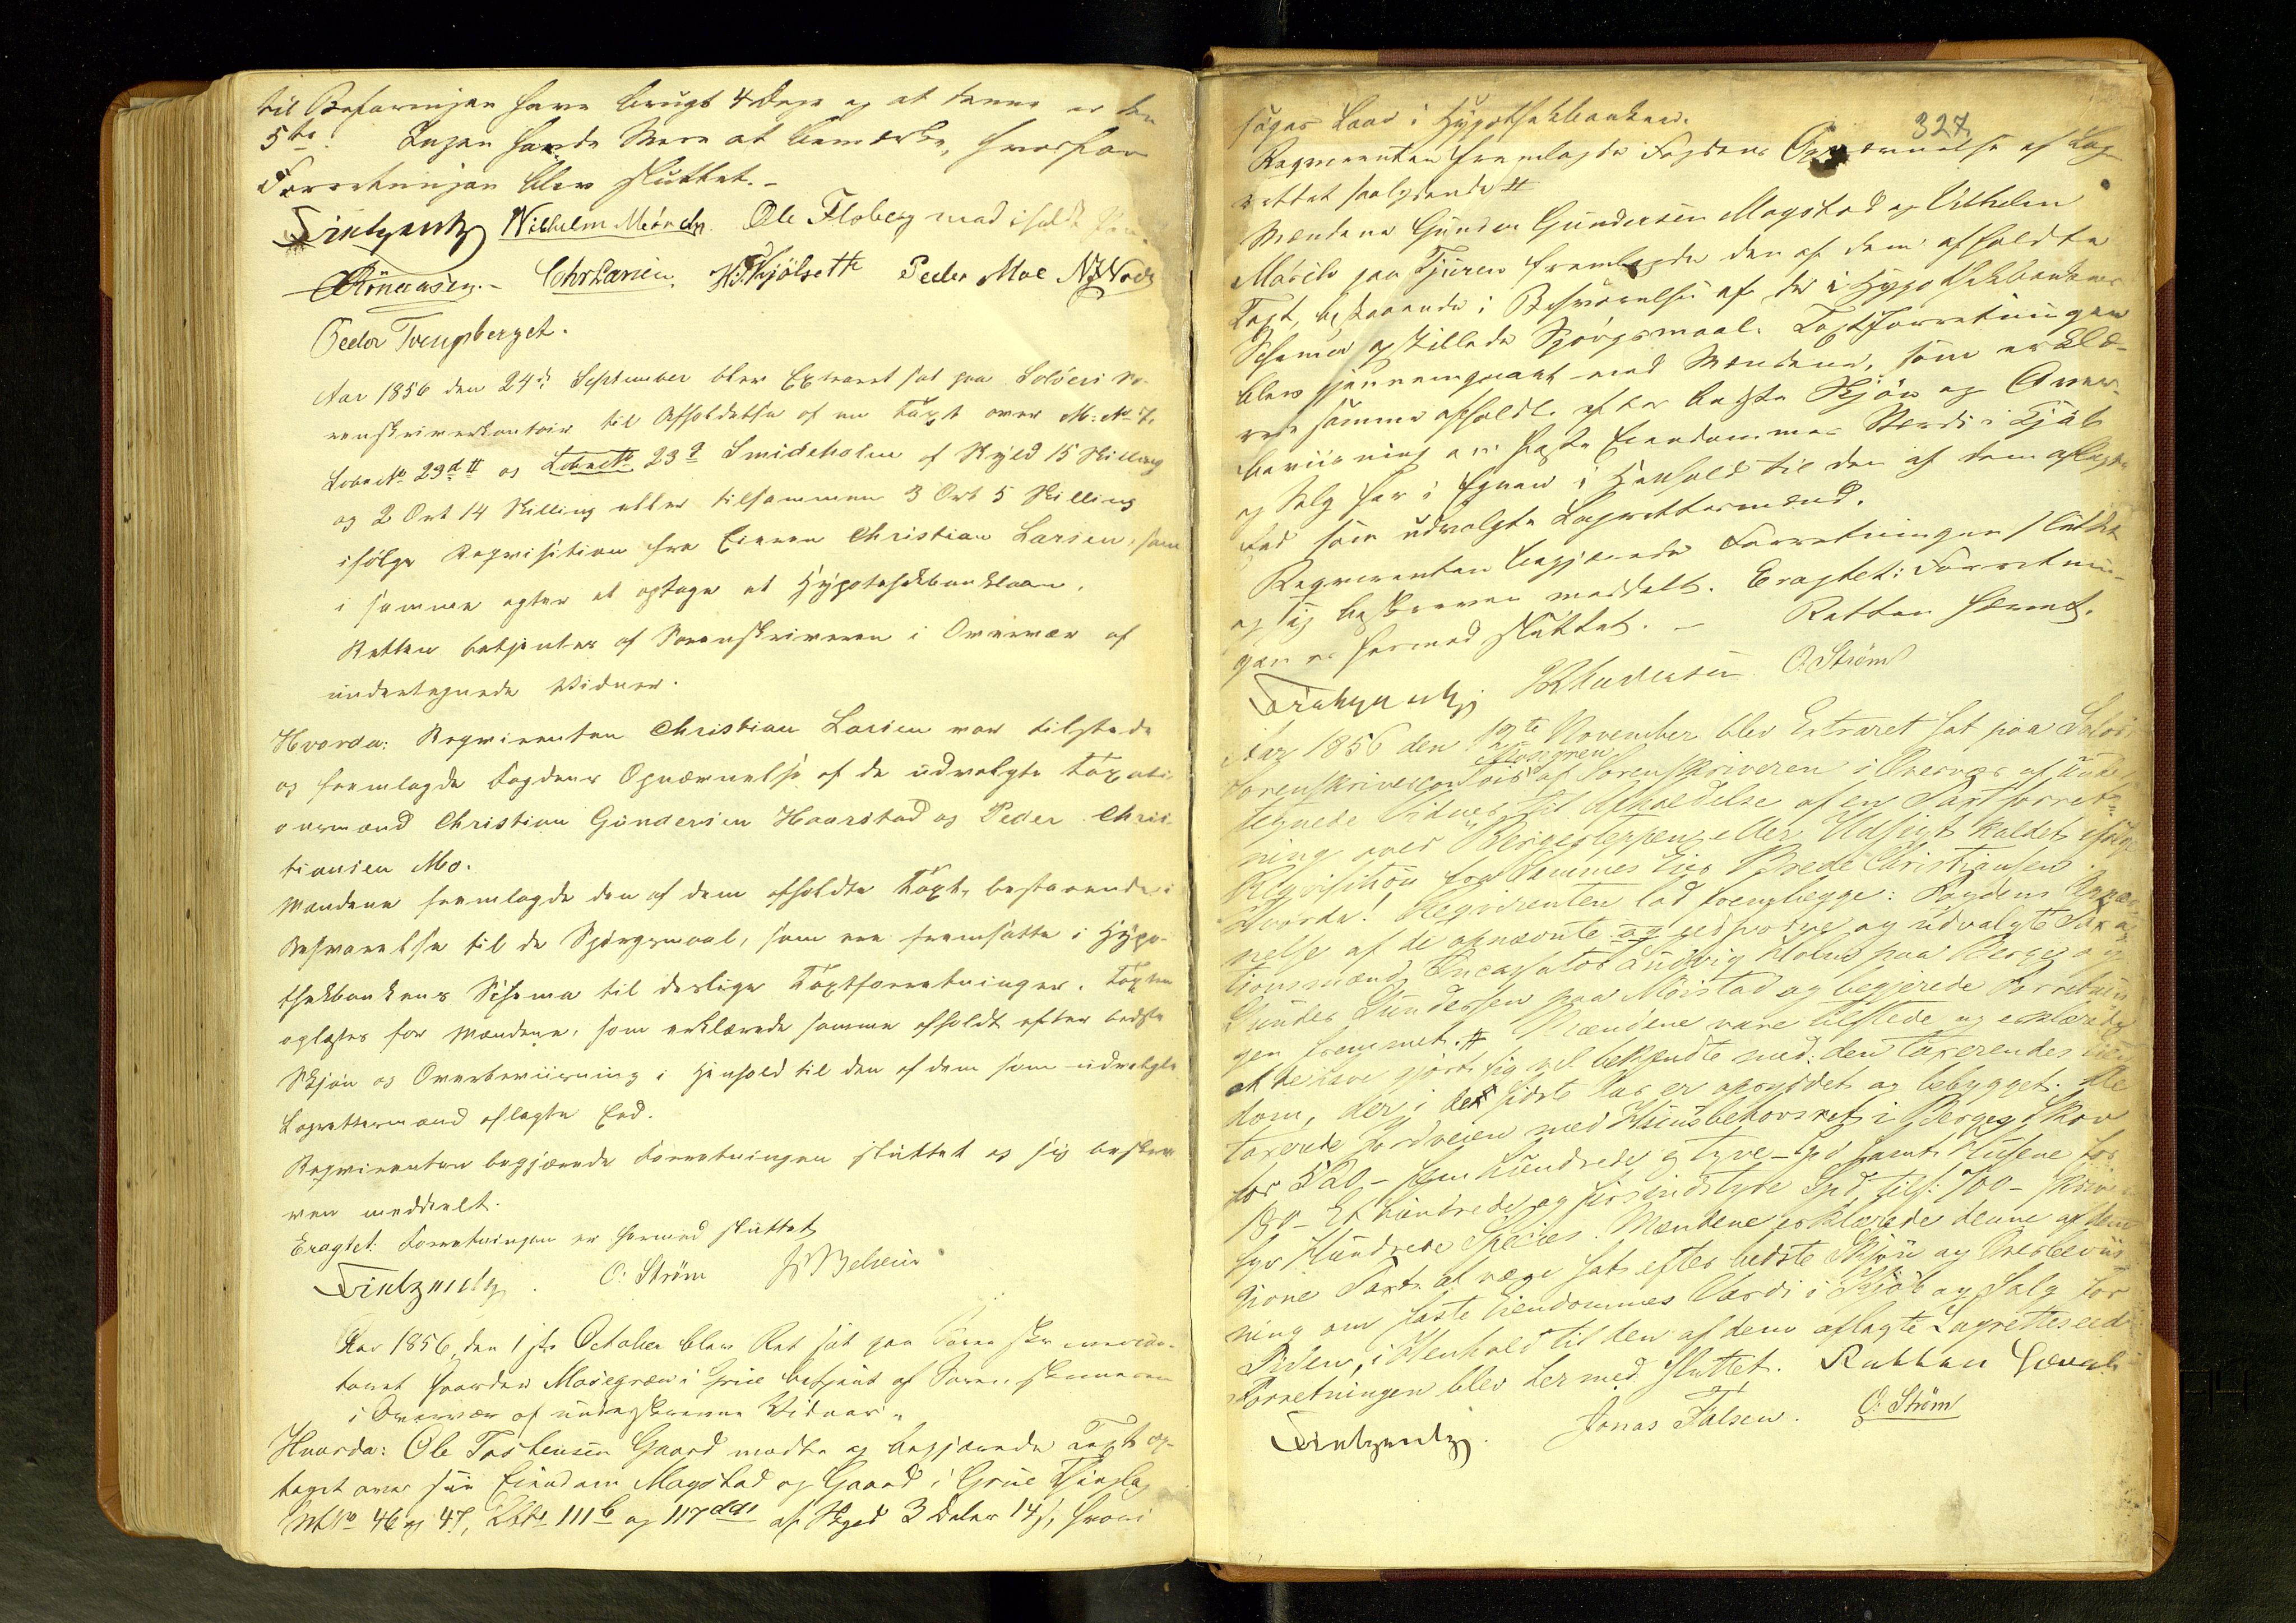 til Befaringen have brugt 4 Dage og at denne er den
5te. Ingen havde Mere at bemærke, hvorfor
Forretningen blev sluttet. -
Wilhelm Mörch. Ole Floberg med iholdt Pen.
Chr Larsen. H. Kjölsette Peder Moe
Peder Tvengsberget.
Aar 1856 den 24de September blev Extraret sat paa Solöers So-
renskriverkontoir til Afholdelse af en Taxt over M: No 7.
Lobe No 23d# og Lobe No 23 Smideholen af Skyld 15 Skilling
og 2 Ort 14 Skilling eller tilsammen 3 Ort 5 Skilling
ifölge Reqvisition fra Eieren Christian Larsen, som
i samme agter at optage et Hypothekbanklaan.
Retten betjentes af Sorenskriveren i Overvær af
undertegnede Vidner.
Hvorda: Reqvirenten Christian Larsen var tilstede
og fremlagde Fogdens Opnævnelse af de udvalgte Taxati-
onsmænd Christian Gundersen Haarstad og Peder Chris-
tiansen Mo.
Mændene fremlagde den af dem afholdte Taxt, bestaaende i
Besvarelse til de Spörgsmaal, som ere fremsatte i Hypo-
thekbankens Schema til deslige Taxtforretninger. Taxten
oplæstes for Mændene, som erklærede samme afholdt efter bedste
Skjön og Overbeviisning i Henhold til den af dem som udvalgte
Lagrettemænd aflagte Eed.
Reqvirenten begjærede Forretningen sluttet og sig beskre-
ven meddelt.
Eragtet: Forretningen er hermed sluttet
O: Ström
Aar 1856, den 1ste October blev Ret sat paa Sorenskriverkon-
toret Gaarden Mosegren i Grue betjent af Sorenskriveren
i Overvær af underskrevne Vidner.
Hvorda: Ole Torstensen Gaard mødte og begjærede Taxt op-
taget over sin Eiendom Magstad og Gaard i Grue Thinglag
Mt No 46 og 47, Lb No 111b og 117 af Skyld 3 Daler 14 ß, hvori
327.
söges Laan i Hypothekbanken.
Reqvirenten fremlagde Fogdens Opnævnelse af Lag-
rettet saalydende #
Mændene Gunder Gundersen Magstad og Vilhelm
Mörch paa Tjuren fremlagde den af dem afholdte
Taxt, bestaaende i Besvarelse af de i Hypothekbankens
Schema opstillede Spörgsmaal. Taxtforretningen
blev gjennemgaaet med Mændene, som erklæ-
rede samme afholdt efter bedste Skjön og Over-
beviisning om faste Eiendommes Værdi i Kjöb
og Salg her i Egnen i Henhold til den af dem aflagte
Eed som udvalgte Lagrettemænd.
Reqvirenten begjærede Forretningen sluttet
og sig beskreven meddelt. Eragtet: Forretnin-
gen er hermed sluttet. - Retten hævet.
O. Ström
Aar 1856 den 12te November blev Extraret sat paa Solörs
Sorenskrivercontoir Mosegren af Sorenskriveren i Overvær af under-
tegnede Vidner til Afholdelse af en Taxtforret-
ning over Bergesletten eller Udsigt kaldet ifölge
Reqvisition fra Sammes Eier Brede Christiansen.
Hvorda! Reqvirenten lod fremlægge: Fogdens Opnæv-
nelse af de opnævnte og edsvorne og udvalgte Taxa-
tionsmænd, Ludvig Holms paa Berge og
Gunder Gundersen paa Moistad og begjerede Forretnin-
gen fremmet. # Mændene vare tilstede og erklærede
at de have gjort sig vel bekjendte med den taxerendes Eien-
dom, der i de sidste Aar er opryddet og bebygget. De
taxerede Jordveien med Huusbehovsret i Berges Skov
for 520 - fem hundrede og tyve - Spd samt Husene for
180 - Et hundrede og firsindstyve Spd, tils: 700 - skriver
syv Hundrede Species. Mændene erklærede denne af dem
givne Taxt at være sat efter bedste Skjön og Overbeviis-
ning om faste Eiendommes Værdi i Kjöb og Salg for
Tiden, i Henhold til den af dem aflagte Lagretteseed
Forretningen blev hermed sluttet. Retten hævet.
Jonas Falsen. O. Ström